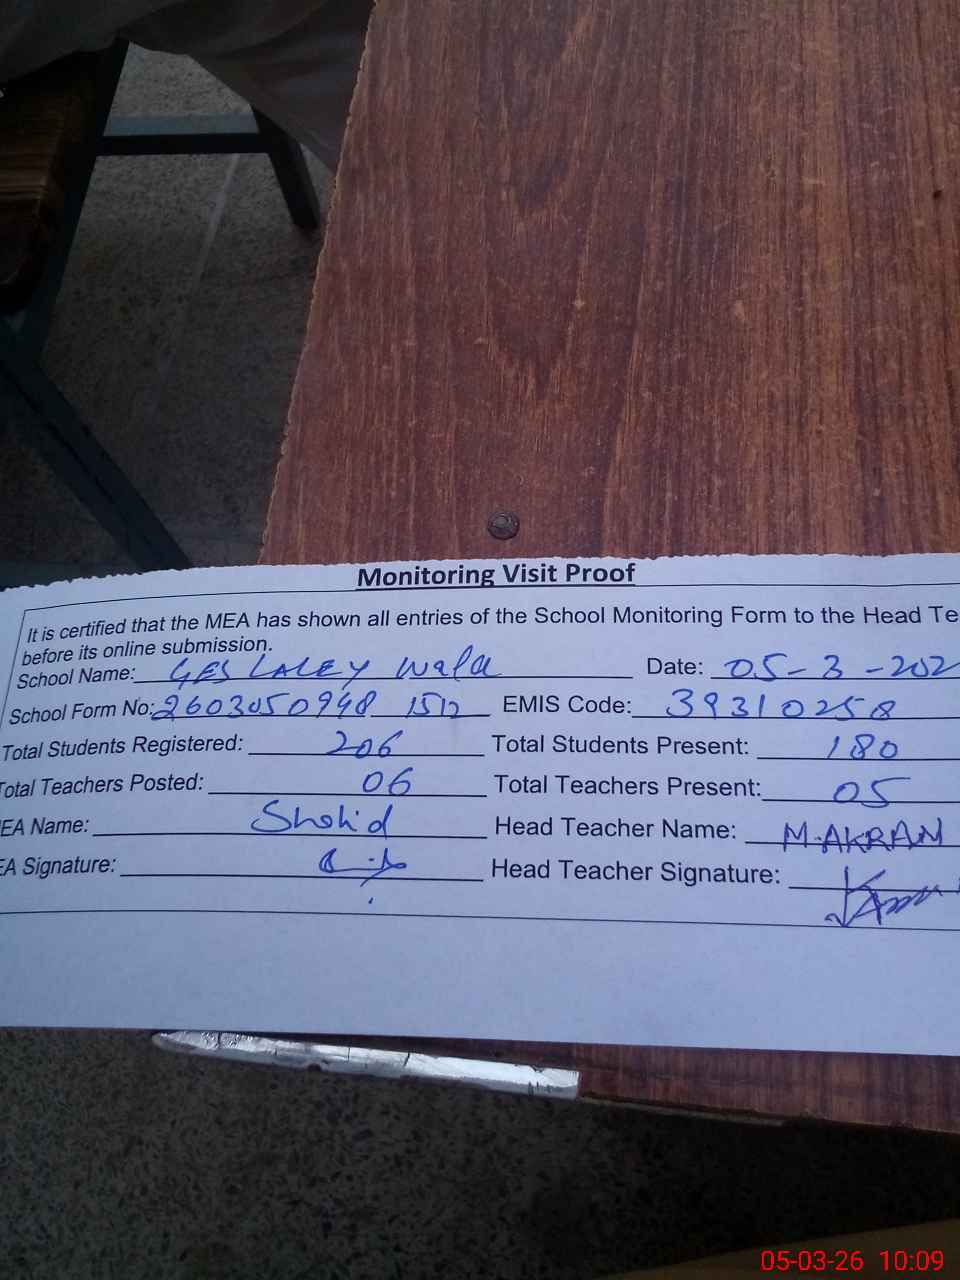 Monitoring Visit Proof
It is certified that the MEA has shown all entries of the School Monitoring Form to the Head Te
before its online submission.
School Name: GES LALEY Wala Date: 05-3-202
School Form No: 2603050948 1512 EMIS Code: 39310258
Total Students Registered: 206 Total Students Present: 180
Total Teachers Posted: 06 Total Teachers Present: 05
EA Name: Shahid Head Teacher Name: M.AKRAM
EA Signature: Head Teacher Signature:
05-03-26 10:09